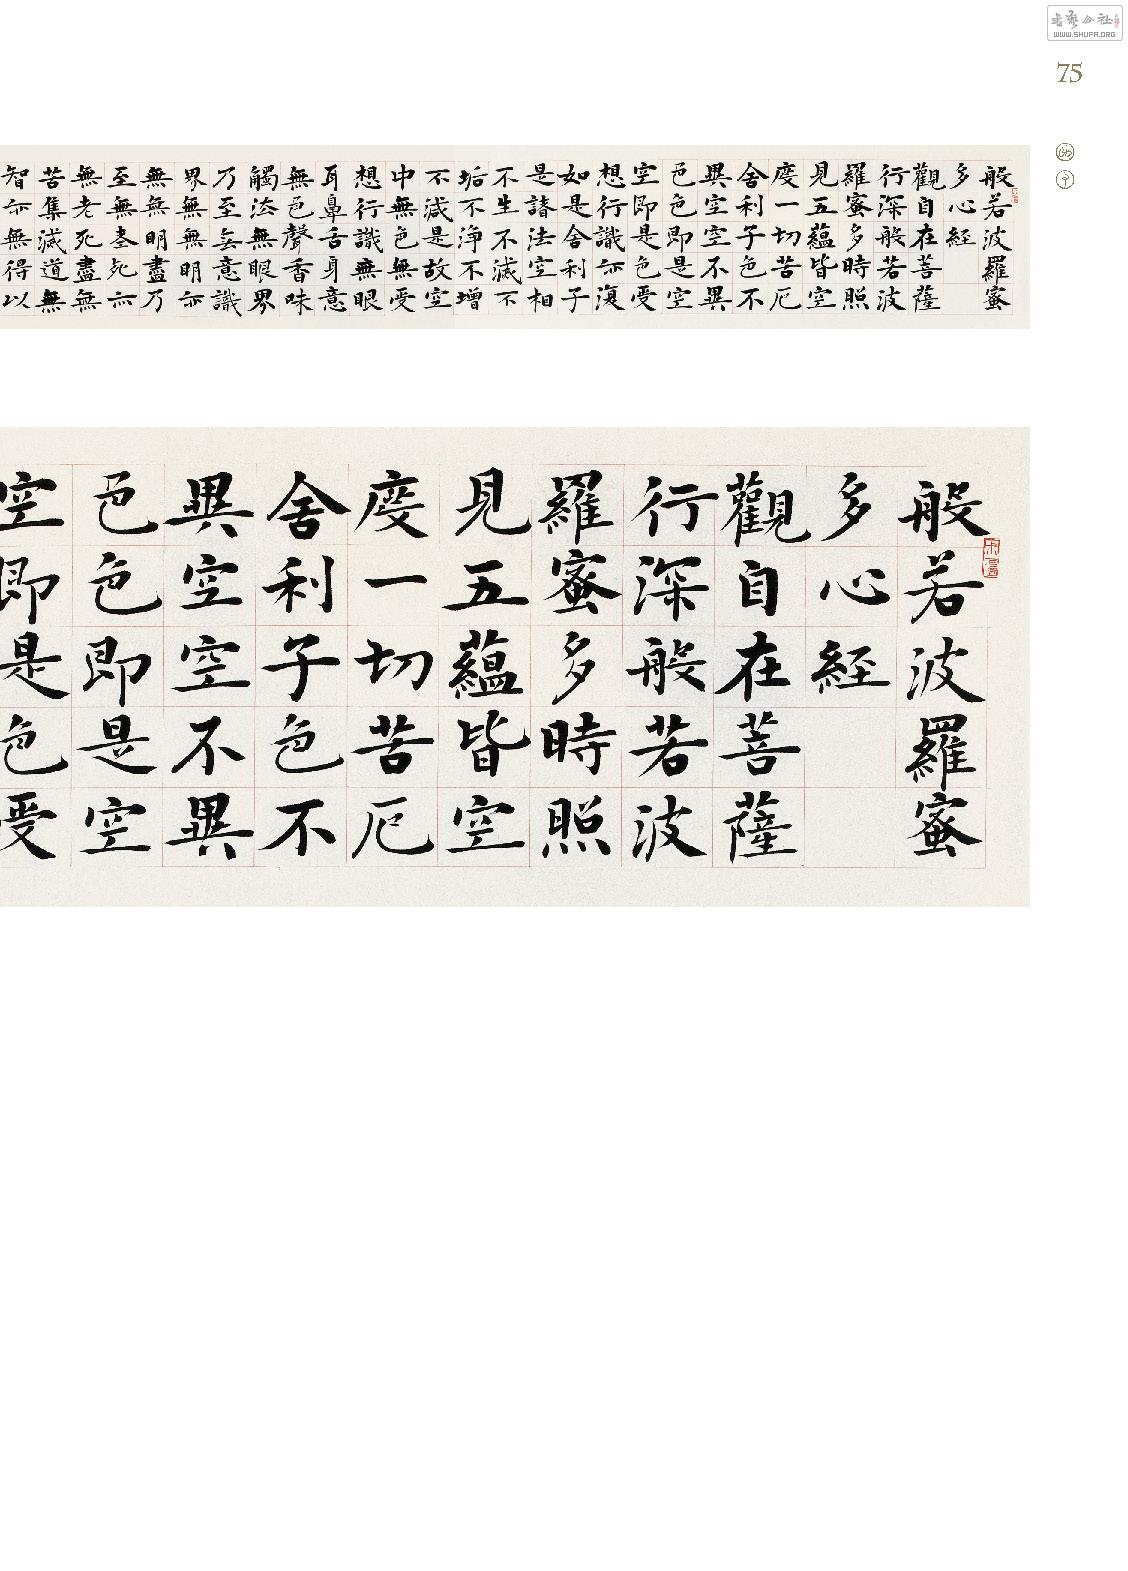 書藝公社
WWW.SHUFA.ORG
75
般若波羅蜜
多心經
觀自在菩薩
行深般若波
羅蜜多時照
見五蘊皆空
度一切苦厄
舍利子色不
異空空不異
色色即是空
空即是色受
想行識亦復
如是舍利子
是諸法空相
不生不滅不
垢不淨不增
不減是故空
中無色無受
想行識無眼
耳鼻舌身意
無色聲香味
觸法無眼界
乃至無意識
界無無明亦
無無明盡乃
至無老死亦
無老死盡無
苦集滅道無
智亦無得以
般若波羅蜜
多心經
觀自在菩薩
行深般若波
羅蜜多時照
見五蘊皆空
度一切苦厄
舍利子色不
異空空不異
色色即是空
空即是色受